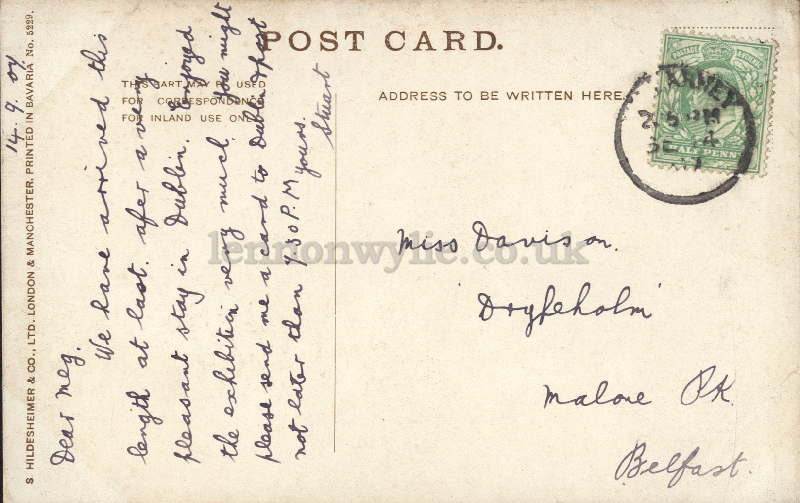 POST CARD.
THIS PART MAY BE USED
FOR CORRESPONDENCE
FOR INLAND USE ONLY
ADDRESS TO BE WRITTEN HERE.
S. HILDESHEIMER & CO., LTD. LONDON & MANCHESTER. PRINTED IN BAVARIA No. 5229.
14. 9. 07
Dear Meg.
We have arrived this
length at last. after a very
pleasant stay in Dublin. Enjoyed
the exhibition very much. You might
please send me a card to Dublin &post
not later than 7.30 P.M yours.
Stuart
POSTAGE
HALF PENNY
2.5 PM
SE 14
07
Miss Davison.
'Drypeholm'
Malone PK.
Belfast.
lennonwylie.co.uk